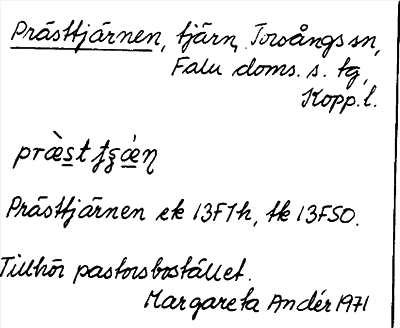 Prästtjärnen, tjärn, Torsångs sn,
Falu doms. s. tg,
Kopp. l.
Prästtjärnen ek 13F7h, tk 13FSO.
Tillhör pastorsbostället.
Margareta Andér 1971